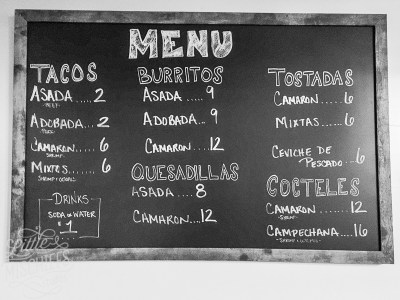 MENU
TACOS
ASADA.....2
BEEF
ADOBADA...2
PORK
CAMARON......6
SHRIMP
MIXTES......6
SHRIMP & OCTOPUS
DRINKS
SODA OR WATER
$1
BURRITOS
ASADA.....9
ADOBADA...9
CAMARON....12
QUESADILLAS
ASADA.....8
CAMARON...12
TOSTADAS
CAMARON.....6
MIXTAS......6
CEVICHE DE
PESCADO...6
COCTELES
CAMARON.......12
SHRIMP
CAMPECHANA....16